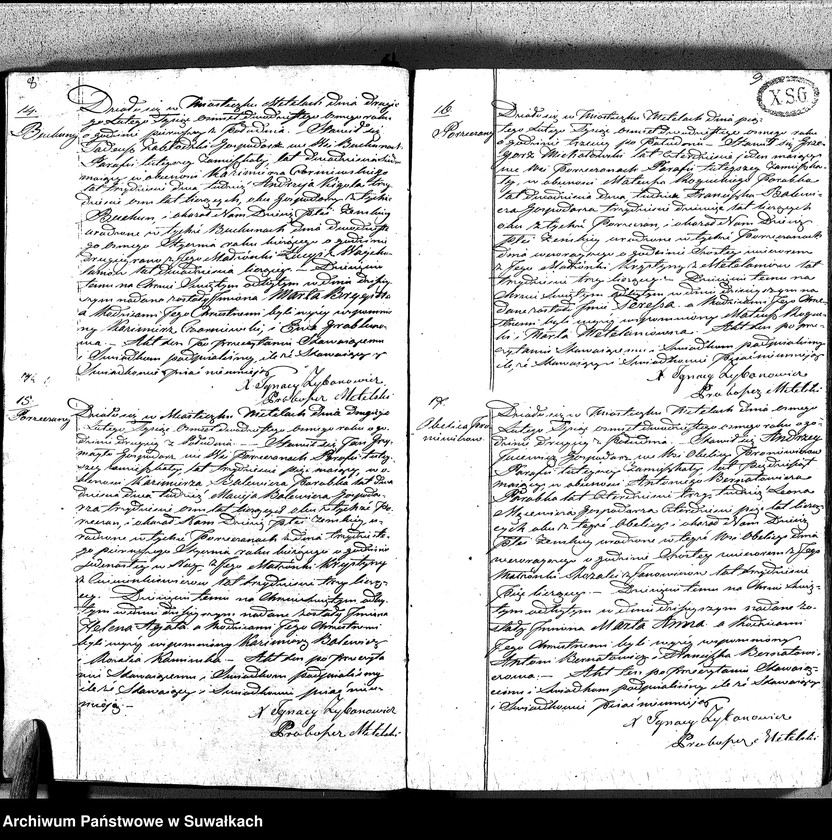 8
14.
Buchuny
Działo się w Miasteczku Metelach dnia drugiego
Lutego Tysiąc osmset dwudziestego osmego roku
o godzinie pierwszej z południa. Stawił się
Tadeusz Gospodarz we Wsi Buchunach
Parafii tutejszej zamieszkały, lat
mający w obecności Kazimierza
lat trzydzieści dwa tudzież Andrzeja trzy
dzieści osm lat liczących, obu Gospodarzy z tychże
Buchun, i okazał Nam Dziecię płci Żeńskiej
urodzone w tychże Buchunach dnia
go osmego Stycznia roku bieżącego o godzinie
drugiej rano z Jego Małżonki Łucyi z
lat dwudziestu liczącej — Dziecięciu
temu na Chrzcie Świętym odbytym w dniu dzisiej
szym nadane zostały Imiona Marta Brygitta
a Rodzicami Jego Chrzestnemi byli wyżej wspomnio
ny Kazimierz Czerniewski, i Ewa
— Akt ten po przeczytaniu Stawającemu
i Świadkom podpisaliśmy, ile że Stawający i
Świadkowie pisać nieumieją
X Ignacy Zybanowicz
Proboszcz Metelski
15.
Porzeczany
Działo się w Miasteczku Metelach dnia drugiego
Lutego Tysiąc osmset dwudziestego osmego roku o go
dzinie drugiej z Południa — Stawił się Jan
Gospodarz we Wsi Porzeczanach Parafii tutej
szej zamieszkały, lat trzydzieści pięć mający, w o
becności Kazimierza Balewicza Parobka lat dwa
dzieścia dwa tudzież Macieja Balewicza Gospoda
rza trzydzieści osm lat liczących obu z tychże Po
rzeczan, i okazał Nam Dziecię płci Żeńskiej u
rodzone w tychże Porzeczanach dnia trzydzieste
go pierwszego Stycznia roku bieżącego o godzinie
jedenastej w Nocy z Jego Małżonki Krystyny
z lat trzydzieścia trzy liczą
cej — Dziecięciu temu na Chrzcie Świętym odby
tym w dniu dzisiejszym nadane zostały Imiona
Helena Agata a Rodzicami Jego Chrzestnemi
byli wyżej wspomniony Kazimierz Balewicz
i Rozalia Kaminska — Akt ten po przeczyta
niu Stawającemu i Świadkom podpisaliśmy
ile że Stawający i Świadkowie pisać nieu
mieją —
X Ignacy Zybanowicz
Proboszcz Metelski
9
XSG
16.
Porzeczany
Działo się w Miasteczku Metelach dnia pią
tego Lutego Tysiąc osmset dwudziestego osmego roku
o godzinie trzeciej po Południu — Stawił się Grze
gorz Michałowski lat Czterdzieści jeden mający
we Wsi Porzeczanach Parafii tutejszej zamieszka
ły, w obecności Mateusza Parobka
lat dwadzieścia dwa, tudzież Franciszka Balewi
cza Gospodarza trzydzieści dziewięć lat liczących
obu z tychże Porzeczan, i okazał Nam Dziecię
płci Żeńskiej urodzone w tychże Porzeczanach
dnia wczorajszego o godzinie szóstej wieczorem
z Jego Małżonki Krystyny z Metelanów lat
trzydzieści trzy liczącej — Dziecięciu temu na
Chrzcie Świętym odbytym w dniu dzisiejszym na
dane zostało Imie Teressa a Rodzicami Jego Chrze
stnemi byli wyżej wspomniony Mateusz
i Marta Metelanówna — Akt ten po prze
czytaniu Stawającemu i Świadkom podpisaliśmy
ile że Stawający i Świadkowie Pisać nieumieją
X Ignacy Zybanowicz
Proboszcz Metelski
17.
Obelica Fro
nimiszkow
Działo się w Miasteczku Metelach dnia osmego
Lutego Tysiąc osmset dwudziestego osmego roku o go
dzinie drugiej z Południa — Stawił się Andrzej
Gospodarz we Wsi Obelicy
Parafii tutejszej zamieszkały lat pięćdziesiąt
mający w obecności Antoniego Bernatowicza
Parobka lat Czterdzieści trzy, tudzież Leona
Gospodarza Czterdzieści pięć lat liczą
cych obu z tejże Obelicy i okazał Nam Dziecię
płci Żeńskiej urodzone w tejże Wsi Obelicy dnia
wczorajszego o godzinie szóstej wieczorem z Jego
Małżonki Rozalii z Janowiczów lat trzydzieści
pięć liczącej — Dziecięciu temu na Chrzcie Świę
tym odbytym w dniu dzisiejszym nadane zo
stały Imiona Marta Anna a Rodzicami
Jego Chrzestnemi byli wyżej wspomniony
Antoni Bernatowicz i Bernatowi
czowa — Akt ten po przeczytaniu Stawają
cemu i Świadkom podpisaliśmy, ile że Stawający
i Świadkowie pisać nieumieją
X Ignacy Zybanowicz
Proboszcz Metelski
Archiwum Państwowe w Suwałkach